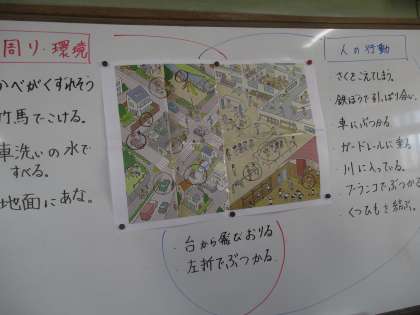 周り・環境
かべがくずれそう
竹馬でこける。
車洗いの水で
すべる。
地面にあな。
人の行動
さくをこえてしまう。
鉄ぼうで引っぱり合い。
車にぶつかる
・ガードレールに乗る
・川に入っている。
・ブランコでぶつかる
・くつひもを結ぶ。
・台から飛びおりる
・左折でぶつかる。